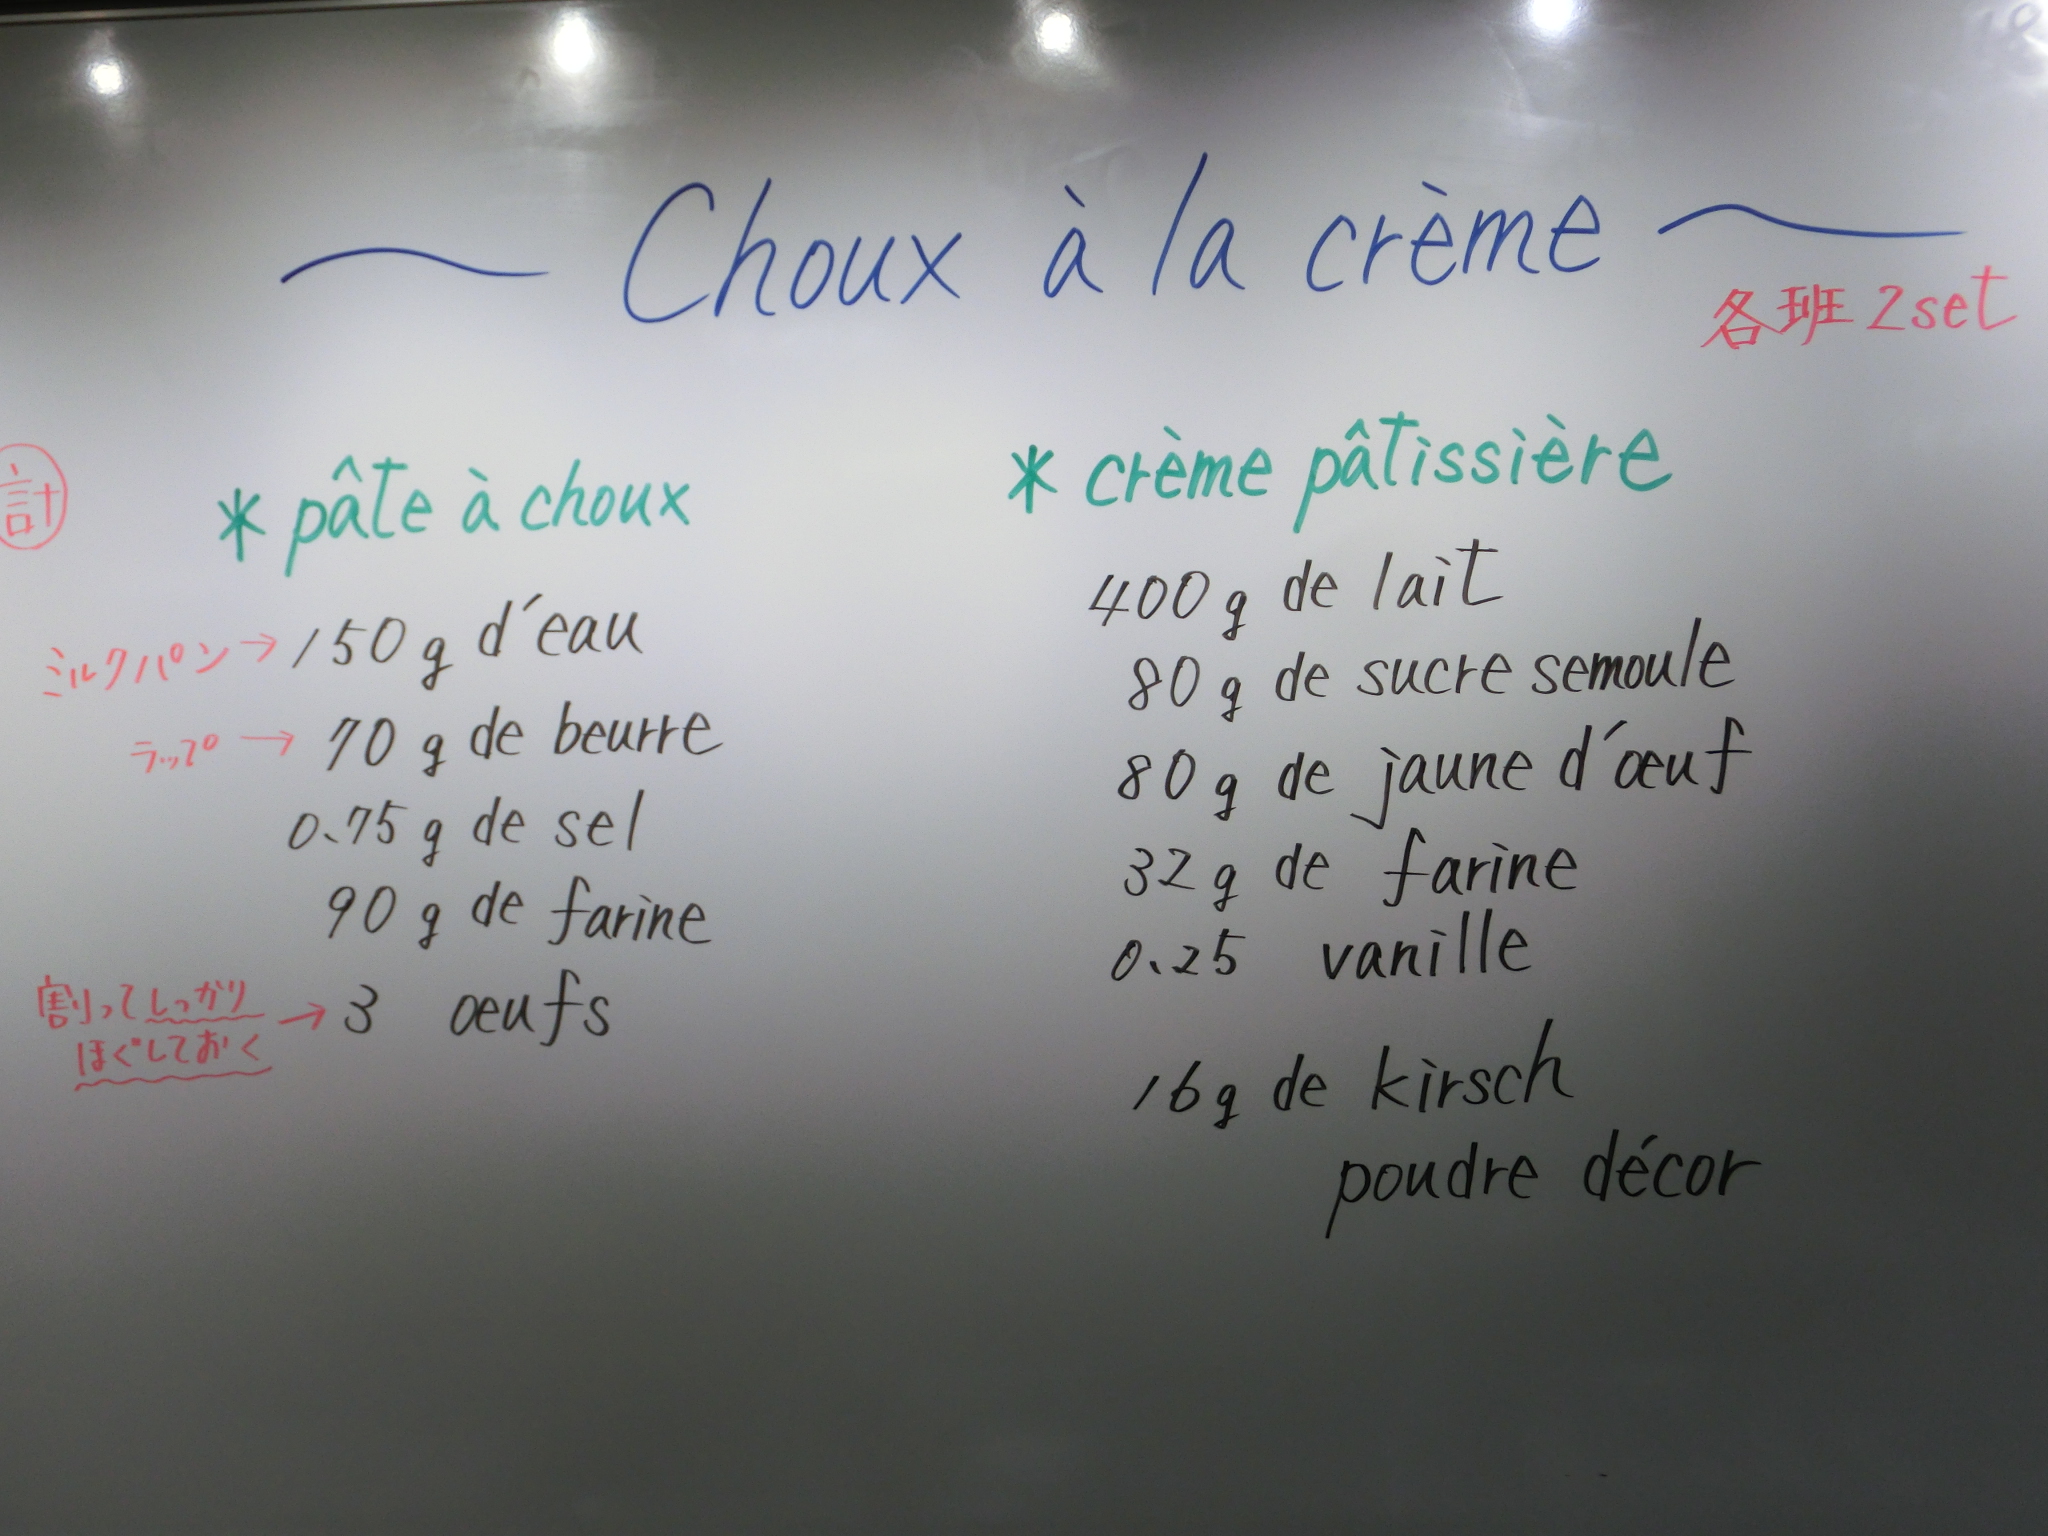 Choux à la crème
各班 2set
計
* pâte à choux
ミルクパン→150g d'eau
ラップ→70g de beurre
0.75g de sel
90g de farine
割ってしっかり→3 œufs
ほぐしておく
* crème pâtissière
400g de lait
80g de sucre semoule
80g de jaune d'œuf
32g de farine
0.25 vanille
16g de kirsch
poudre décor